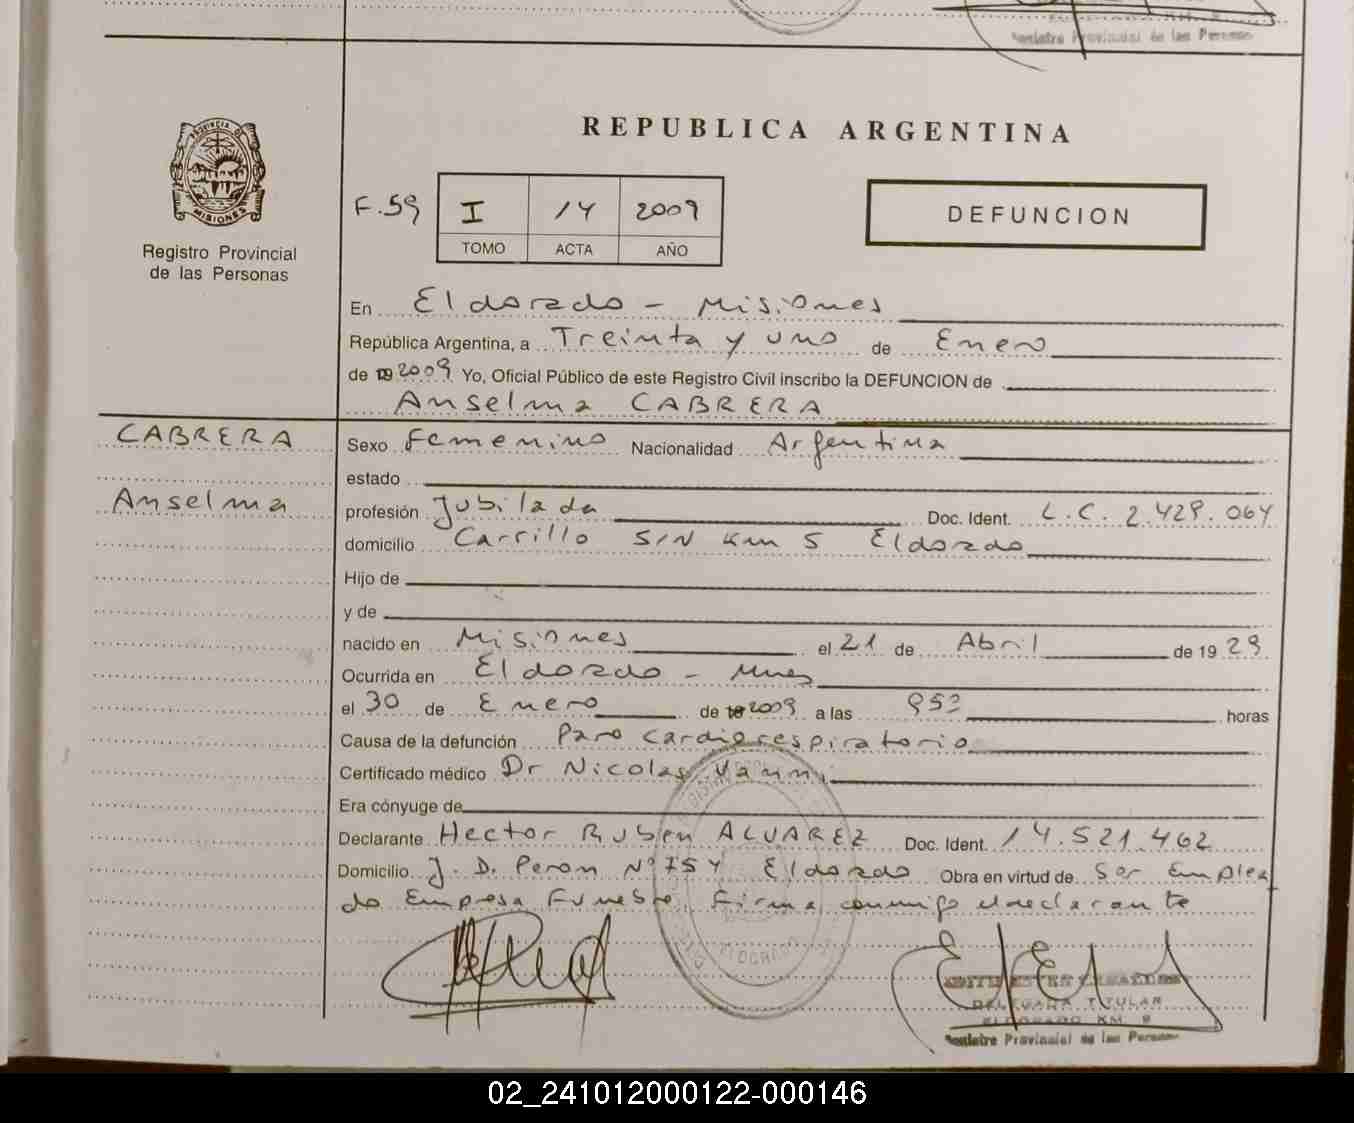 Registro Provincial de las Personas
REPUBLICA ARGENTINA
PROVINCIA DE
MISIONES
Registro Provincial
de las Personas
F. 59
I 14 2009
TOMO ACTA AÑO
DEFUNCION
En Eldorado - Misiones
República Argentina, a Treinta y uno de Enero
de 2009 Yo, Oficial Público de este Registro Civil inscribo la DEFUNCION de
Anselma CABRERA
CABRERA
Anselma
Sexo Femenino Nacionalidad Argentina
estado
profesión Jubilada Doc. Ident. L.C. 2.429.064
domicilio Carrillo S/N Km 5 Eldorado
Hijo de
y de
nacido en Misiones el 21 de Abril de 1929
Ocurrida en Eldorado - Mnes
el 30 de Enero de 2009 a las horas
Causa de la defunción Paro cardiorespiratorio
Certificado médico Dr Nicolas
Era cónyuge de
Declarante Hector Ruben ALVAREZ Doc. Ident. 14.521.462
Domicilio J. D. Peron N° 754 Eldorado Obra en virtud de Ser Emplea
do Empresa Funebre Firma conmigo el declarante
DELEGADA TITULAR
ELDORADO KM
Registro Provincial de las Personas
02_241012000122-000146